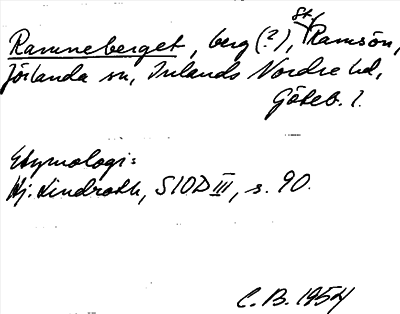 Ramneberget, berg (?), St. Ramsön,
Jörlanda sn, Inlands Nordre hd,
Göteb. l.
Etymologi:
Hj. Lindroth, SIOD III, s. 90.
C. B. 1954